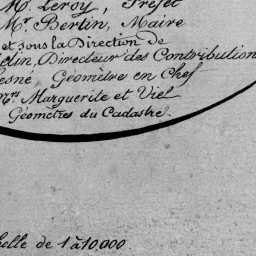 M. Leroy, Préfet
Mr. Bertin, Maire
et sous la Direction de
elin, Directeur des Contribution
esné, Géomètre en Chef
mrs. Marguerite et Viel
Géomètres du Cadastre.
helle de 1 à 10000.